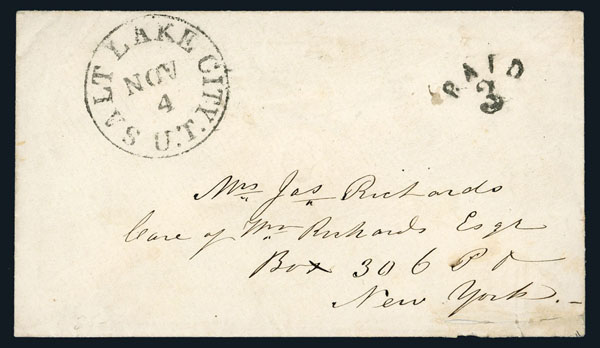 SALT LAKE CITY. U.T.
NOV
4
PAID
3
Mrs Jas Richards
Care of Wm Richards Esqr
Box 306 P O
New York.